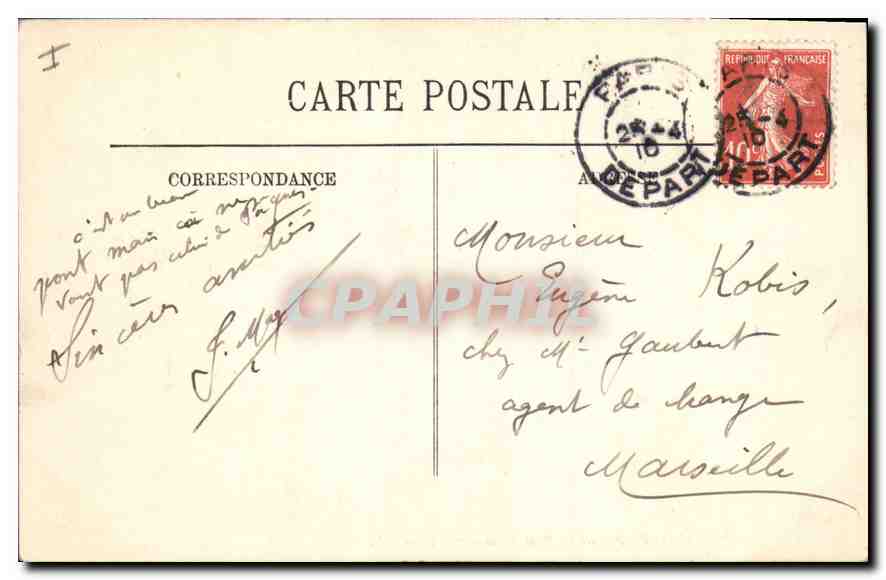 I
CARTE POSTALE
RÉPUBLIQUE FRANÇAISE
10c
POSTES
PARIS
25-4
10
DEPART
PARIS
25-4
10
DEPART
CORRESPONDANCE
ADRESSE
c'est un beau
pont mais ça ne
vaut pas celui de
Sincères amitiés
J. May
Monsieur
Eugène Kobis,
chez Mr Gaubert
agent de change
Marseille
CPAPHIL